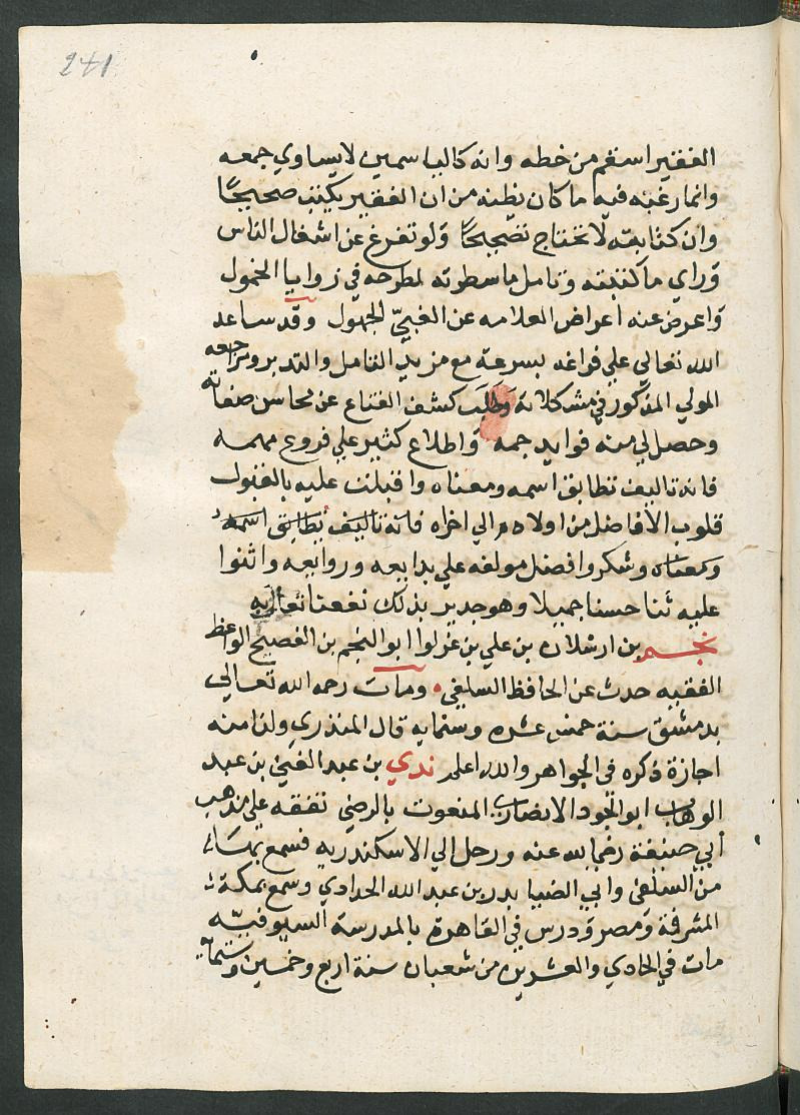 241
الفقير اسقم من خطه وانه كالياسمين لايساوي جمعه
وانما رغبه فيه ما كان يظنه من ان الفقير يكتب صحيحًا
وان كتابته لا تحتاج تصحيحًا ولو تفرغ عن اشغال الناس
وراي ما كتبته وتامل ما سطرته لطرحه في زوايا الخمول
واعرض عنه اعراض العلامه عن الغبيّ الجهول وقد ساعد
الله تعالي علي فراغه بسرعة مع مزيد التامل والتدبر ومراجعه
المولي المذكور في مشكلاته وطلب كشف القناع عن محاسن صفاته
وحصل لي منه فوايد جمه واطلاع كثير علي فروع مهمه
فانه تاليف تطابق اسمه ومعناه واقبلت عليه بالقبول
قلوب الافاضل من اولاه الي اخراه فانه تاليف تطابق اسمه
ومعناه وشكروا فضل مولفه علي بدايعه وروايعه واثنوا
عليه ثنا حسنا جميلا وهو جدير بذلك نفعنا تعالي به
نجم بن ارسلان بن علي بن غرلوا ابو النجم بن الفصيح الواعظ
الفقيه حدث عن الحافظ السلفي ومات رحمه الله تعالي
بدمشق سنة خمس عشره وستمايه قال المنذري ولنا منه
اجازة ذكره في الجواهر والله اعلم ندي بن عبد الغني بن عبد
الوهاب ابو الجود الانصاري المنعوت بالرضي تفقه علي مذهب
ابي حنيفة رضي الله عنه ورحل الي الاسكندريه فسمع بها
من السلفي وابي الضيا بدر بن عبد الله الحدادي وسمع بمكة
المشرفة ومصر ودرس في القاهرة بالمدرسة السيوفيّه
مات في الحادي والعشرين من شعبان سنة اربع وخمسين وستمايه